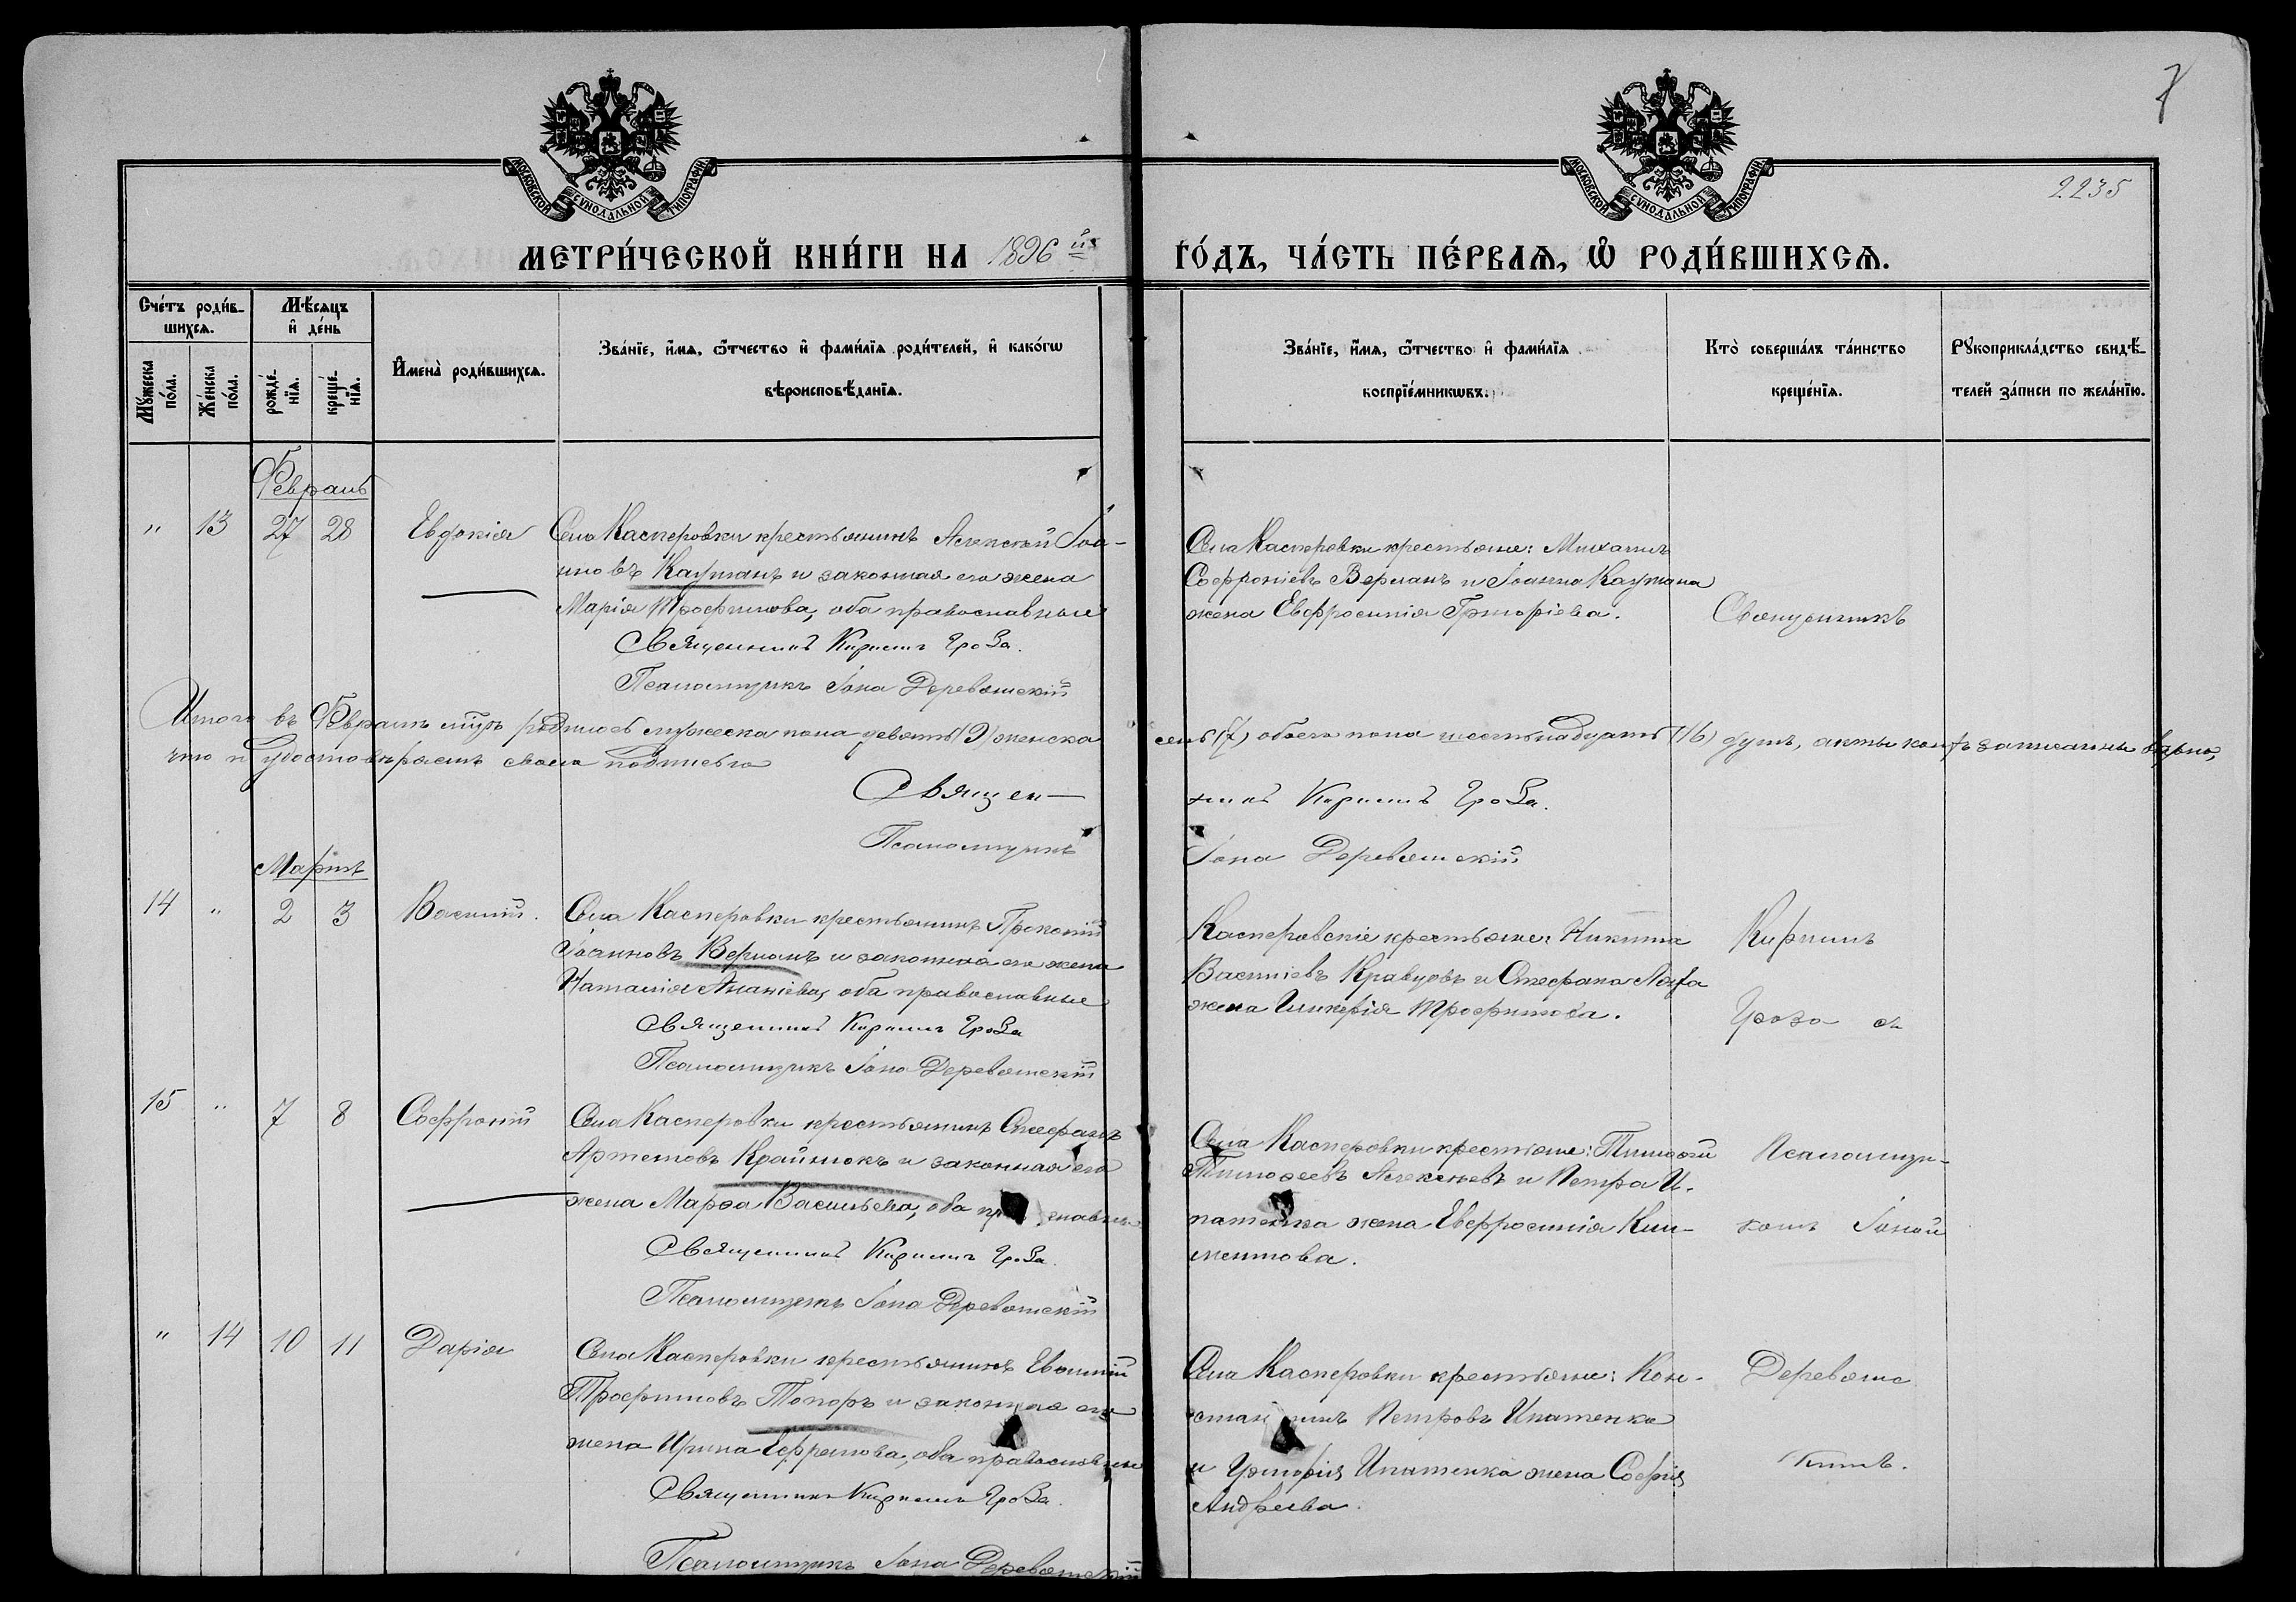 7
2235
МОСКОВСКОЙ СУНОДАЛЬНОЙ ТИПОГРАФІИ
МОСКОВСКОЙ СУНОДАЛЬНОЙ ТИПОГРАФІИ
МЕТРИ́ЧЕСКОЙ КНИ́ГИ НА 1896 й
ГО́ДЪ, ЧА́СТЬ ПЕ́РВАѦ, Ѡ҆ РОДИ́ВШИХСѦ.
Сче́тъ роди́в-
шихсѧ.
Мѣ́сѧцъ
и҆ де́нь
Мꙋ́жеска
по́ла.
Же́нска
по́ла.
рожде́-
нїѧ.
креще́-
нїѧ.
И҆мена̀ роди́вшихсѧ.
Зва́нїе, и҆́мѧ, ѻ҆́тчество и҆ фами́лїѧ роди́телей, и҆ како́гѡ
вѣроисповѣ́данїѧ.
Зва́нїе, и҆́мѧ, ѻ҆́тчество и҆ фами́лїѧ
воспрїе́мникѡвъ.
Кто̀ соверша́лъ та́инство
креще́нїѧ.
Рꙋкоприкла́дство свидѣ́-
телей за́писи по жела́нїю.
Февраль
" 13 27 28 Евдокія
Села Касперовки крестьянинъ Алексѣй Іоа-
нновъ Кауманъ и законная его жена
Марія Трофимова, оба православные
Священникъ Кириллъ Гроза.
Псаломщикъ Іона Деревянскій
Села Касперовки крестьяне: Михаилъ
Софроніевъ Верланъ и Іоанна Каумана
жена Евфросинія Григоріева.
Священникъ
Итого въ Февралѣ мцѣ родилось мужеска пола девять (9) женска
семь (7) обоего пола шестьнадцать (16) душъ, акты коихъ записаны вѣрно,
что и удостовѣряемъ своею подписью
Священ-
никъ Кириллъ Гроза.
Псаломщикъ
Іона Деревянскій
Мартъ
14 " 2 3 Василій.
Села Касперовки крестьянинъ Прокопій
Іоанновъ Верланъ и законная его жена
Наталія Ананіева, оба православные
Священникъ Кириллъ Гроза
Псаломщикъ Іона Деревянскій
Касперовскіе крестьяне: Никита
Василіевъ Кравцовъ и Стефана
жена Гликерія Трофимова.
Кириллъ
Гроза съ
15 " 7 8 Софроній
Села Касперовки крестьянинъ Стефанъ
Артемовъ Крайнюкъ и законная его
жена Марѳа Васильева, оба православные
Священникъ Кириллъ Гроза.
Псаломщикъ Іона Деревянскій
Села Касперовки крестьяне: Тимоѳей
Тимоѳеевъ Алексѣевъ и Петра И-
патенка жена Евфросинія Кли-
ментова.
Псаломщи-
комъ Іоной
" 14 10 11 Дарія
Села Касперовки крестьянинъ Евѳимій
Трофимовъ Топоръ и законная его
жена Ирина Ефремова, оба православные
Священникъ Кириллъ Гроза.
Псаломщикъ Іона Деревянскій
Села Касперовки крестьяне: Кон-
стантинъ Петровъ Ипатенко
и Григорія Ипатенка жена Софія
Андреева.
Деревянс
кимъ.